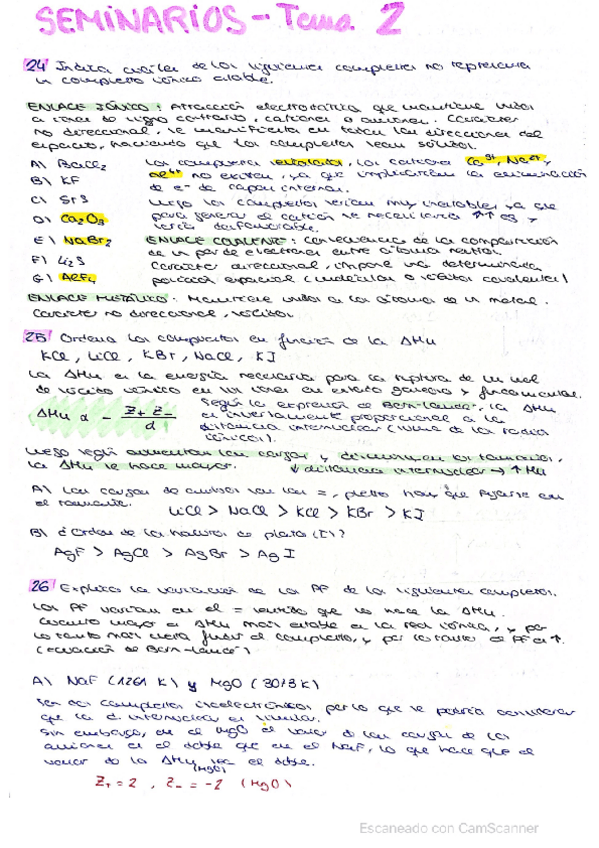 SEMINARIOS - Tema 2
24 Indica cuáles de los siguientes compuestos no representa
un compuesto iónico estable.
ENLACE IÓNICO: Atracción electrostática que mantiene unidos
a iones de signo contrario, cationes o aniones. Carácter
no direccional, se manifiesta en todas las direcciones del
espacio, haciendo que los compuestos sean sólidos.
A) BaCl2
B) KF
C) SrS
D) Ca2O3
E) NaBr2
F) Li2S
G) AlF4
los compuestos señalados, los cationes Ca3+, Na2+,
Al4+ no existen, ya que implicarían la eliminación
de e- de capas internas.
luego los compuestos serían muy inestables, ya que
para generar el catión se necesitaría ↑↑ y
sería desfavorable.
ENLACE COVALENTE: Consecuencia de la compartición
de un par de electrones entre átomos neutros.
Carácter direccional, impone una determinada
posición espacial (moléculas o sólidos covalentes)
ENLACE METÁLICO: Mantiene unidos a los átomos de un metal.
Carácter no direccional, sólidos
25 Ordena los compuestos en función de la ΔHu
KCl, LiCl, KBr, NaCl, KI
La ΔHu es la energía necesaria para la ruptura de un mol
de sólido iónico en sus iones en estado gaseoso y fundamental.
ΔHu α - Z+ Z- / d
Según la expresión de Born-Landé, la ΔHu
es inversamente proporcional a la
distancia internuclear (suma de los radios
iónicos).
Luego según aumentan las cargas y disminuyen los tamaños,
la ΔHu se hace mayor. ↓ distancia internuclear → ↑ Hu
A) Las cargas de ambos son las =, luego hay que fijarse en
el tamaño.
LiCl > NaCl > KCl > KBr > KI
B) ¿Orden de los haluros de plata (I)?
AgF > AgCl > AgBr > AgI
26 Explica la variación de los PF de los siguientes compuestos.
Los PF varían en el = sentido que lo hace la ΔHu.
Cuanto mayor es ΔHu más estable es la red iónica, y por
lo tanto más cuesta fundir el compuesto, y por lo tanto el PF es ↑.
(ecuación de Born-Landé)
A) NaF (1261 K) y MgO (3073 K)
Son dos compuestos isoelectrónicos por lo que se podría considerar
que la d. internuclear es similar.
Sin embargo, en el MgO el valor de las cargas de los
aniones es el doble que en el NaF, lo que hace que el
valor de la ΔHu (MgO) sea el doble.
Z+ = 2, Z- = -2 (MgO)
Escaneado con CamScanner